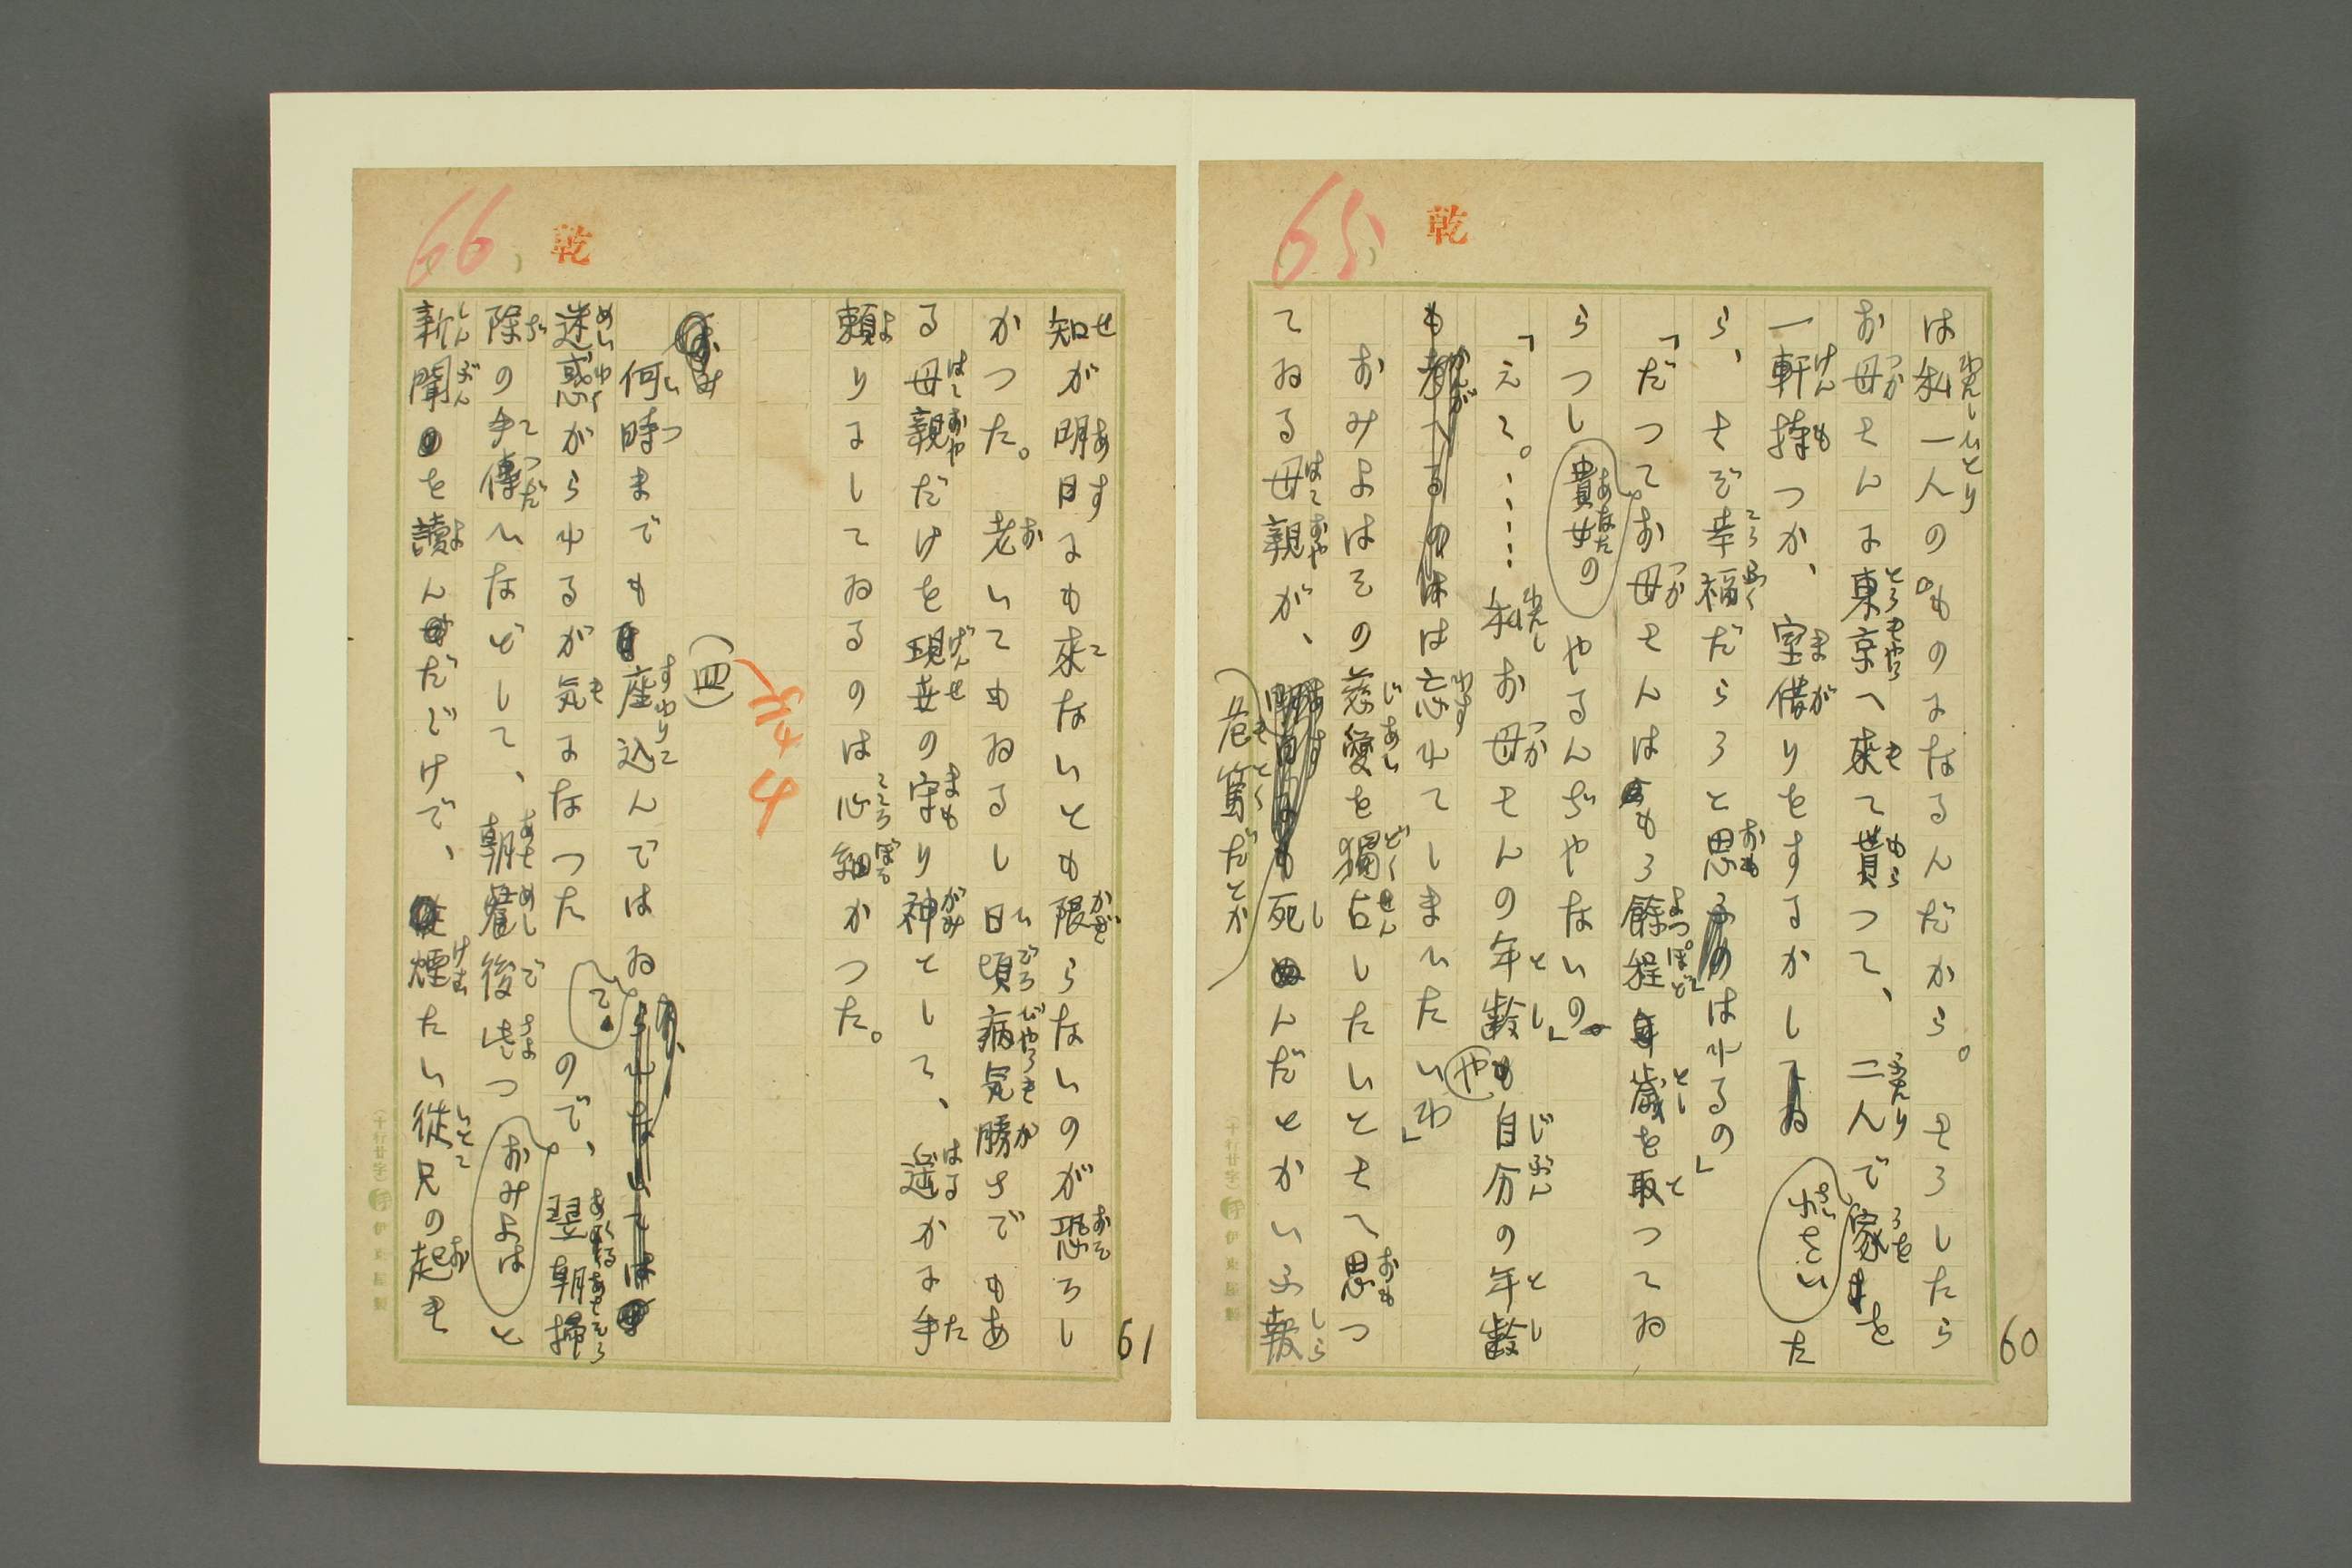 65
乾
60
は私一人のものになるんだから。そうしたら
お母さんに東京へ来て貰つて、二人で家を
一軒持つか、室借りをするかしてゐた
ら、さぞ幸福だらうと思はれるの」
「だつてお母さんはもう餘程年歳を取つてゐ
らつしやるんぢやないの。貴女の
「えゝ。……私お母さんの年齢や自分の年齢
もは忘れてしまひたいわ」
おみよはその慈愛を獨占したいとさへ思つ
てゐる母親が、死んだとかいふ報
危篤だとか
66
乾
61
知が明日にも來ないとも限らないのが恐ろし
かつた。老いてもゐるし日頃病気勝さでもあ
る母親だけを現世の守り神として、遥かに手
頼りにしてゐるのは心細かつた。
4
(四)
何時までも座込んではゐ
迷惑がられるが気になつたので、翌朝掃
除の手傳ひなどして、朝餐後で些つとおみよは
新聞を讀んだだけで、煙たい従兄の起き